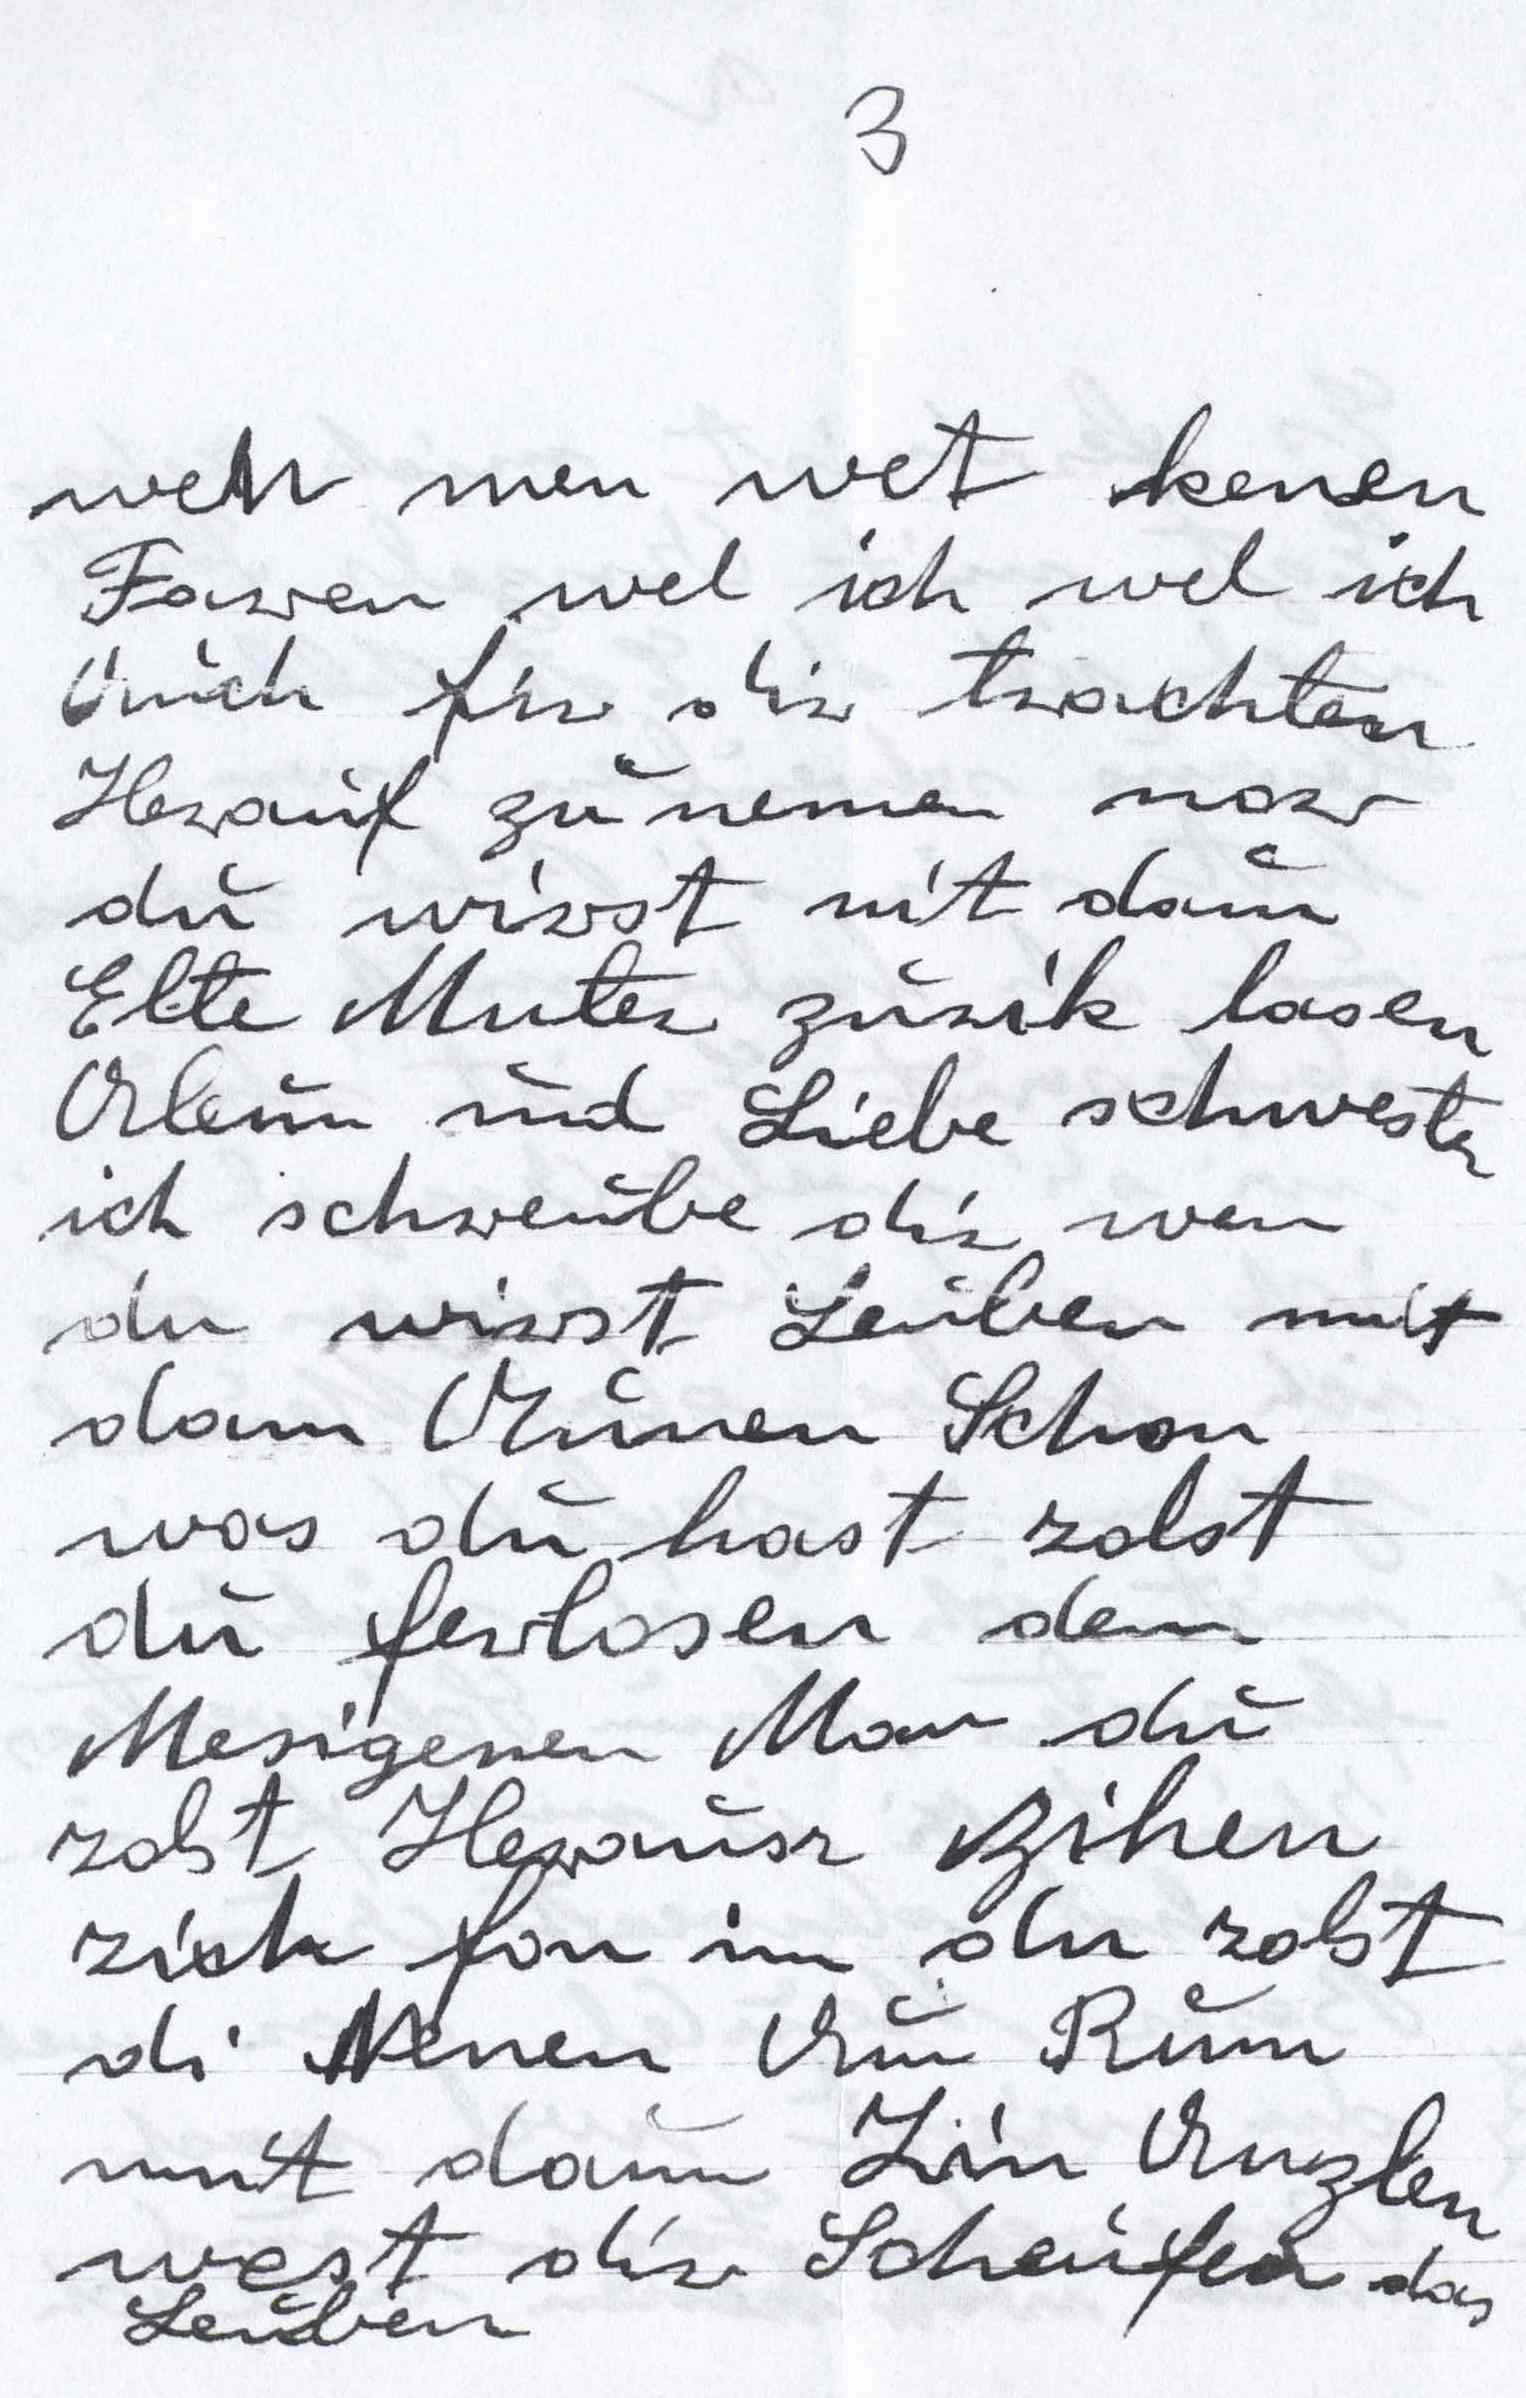 3
wen men wet kenen
Faren wel ich wel ich
Ouich fir dir trachten
Herauf zu nemen nor
du wirst nit dain
Elte Muter zurik lasen
Olein und Liebe schwester
ich schreube dir wen
du wirst Leuben mit
dam Orimen Schon
was du hast zolst
du ferlosen dem
Mesigenen Man du
zolst Herausz zihen
zich fon im du zolst
di Nenen Orim Rum
mit dain Zin
west dir Scheufen das
Leuben